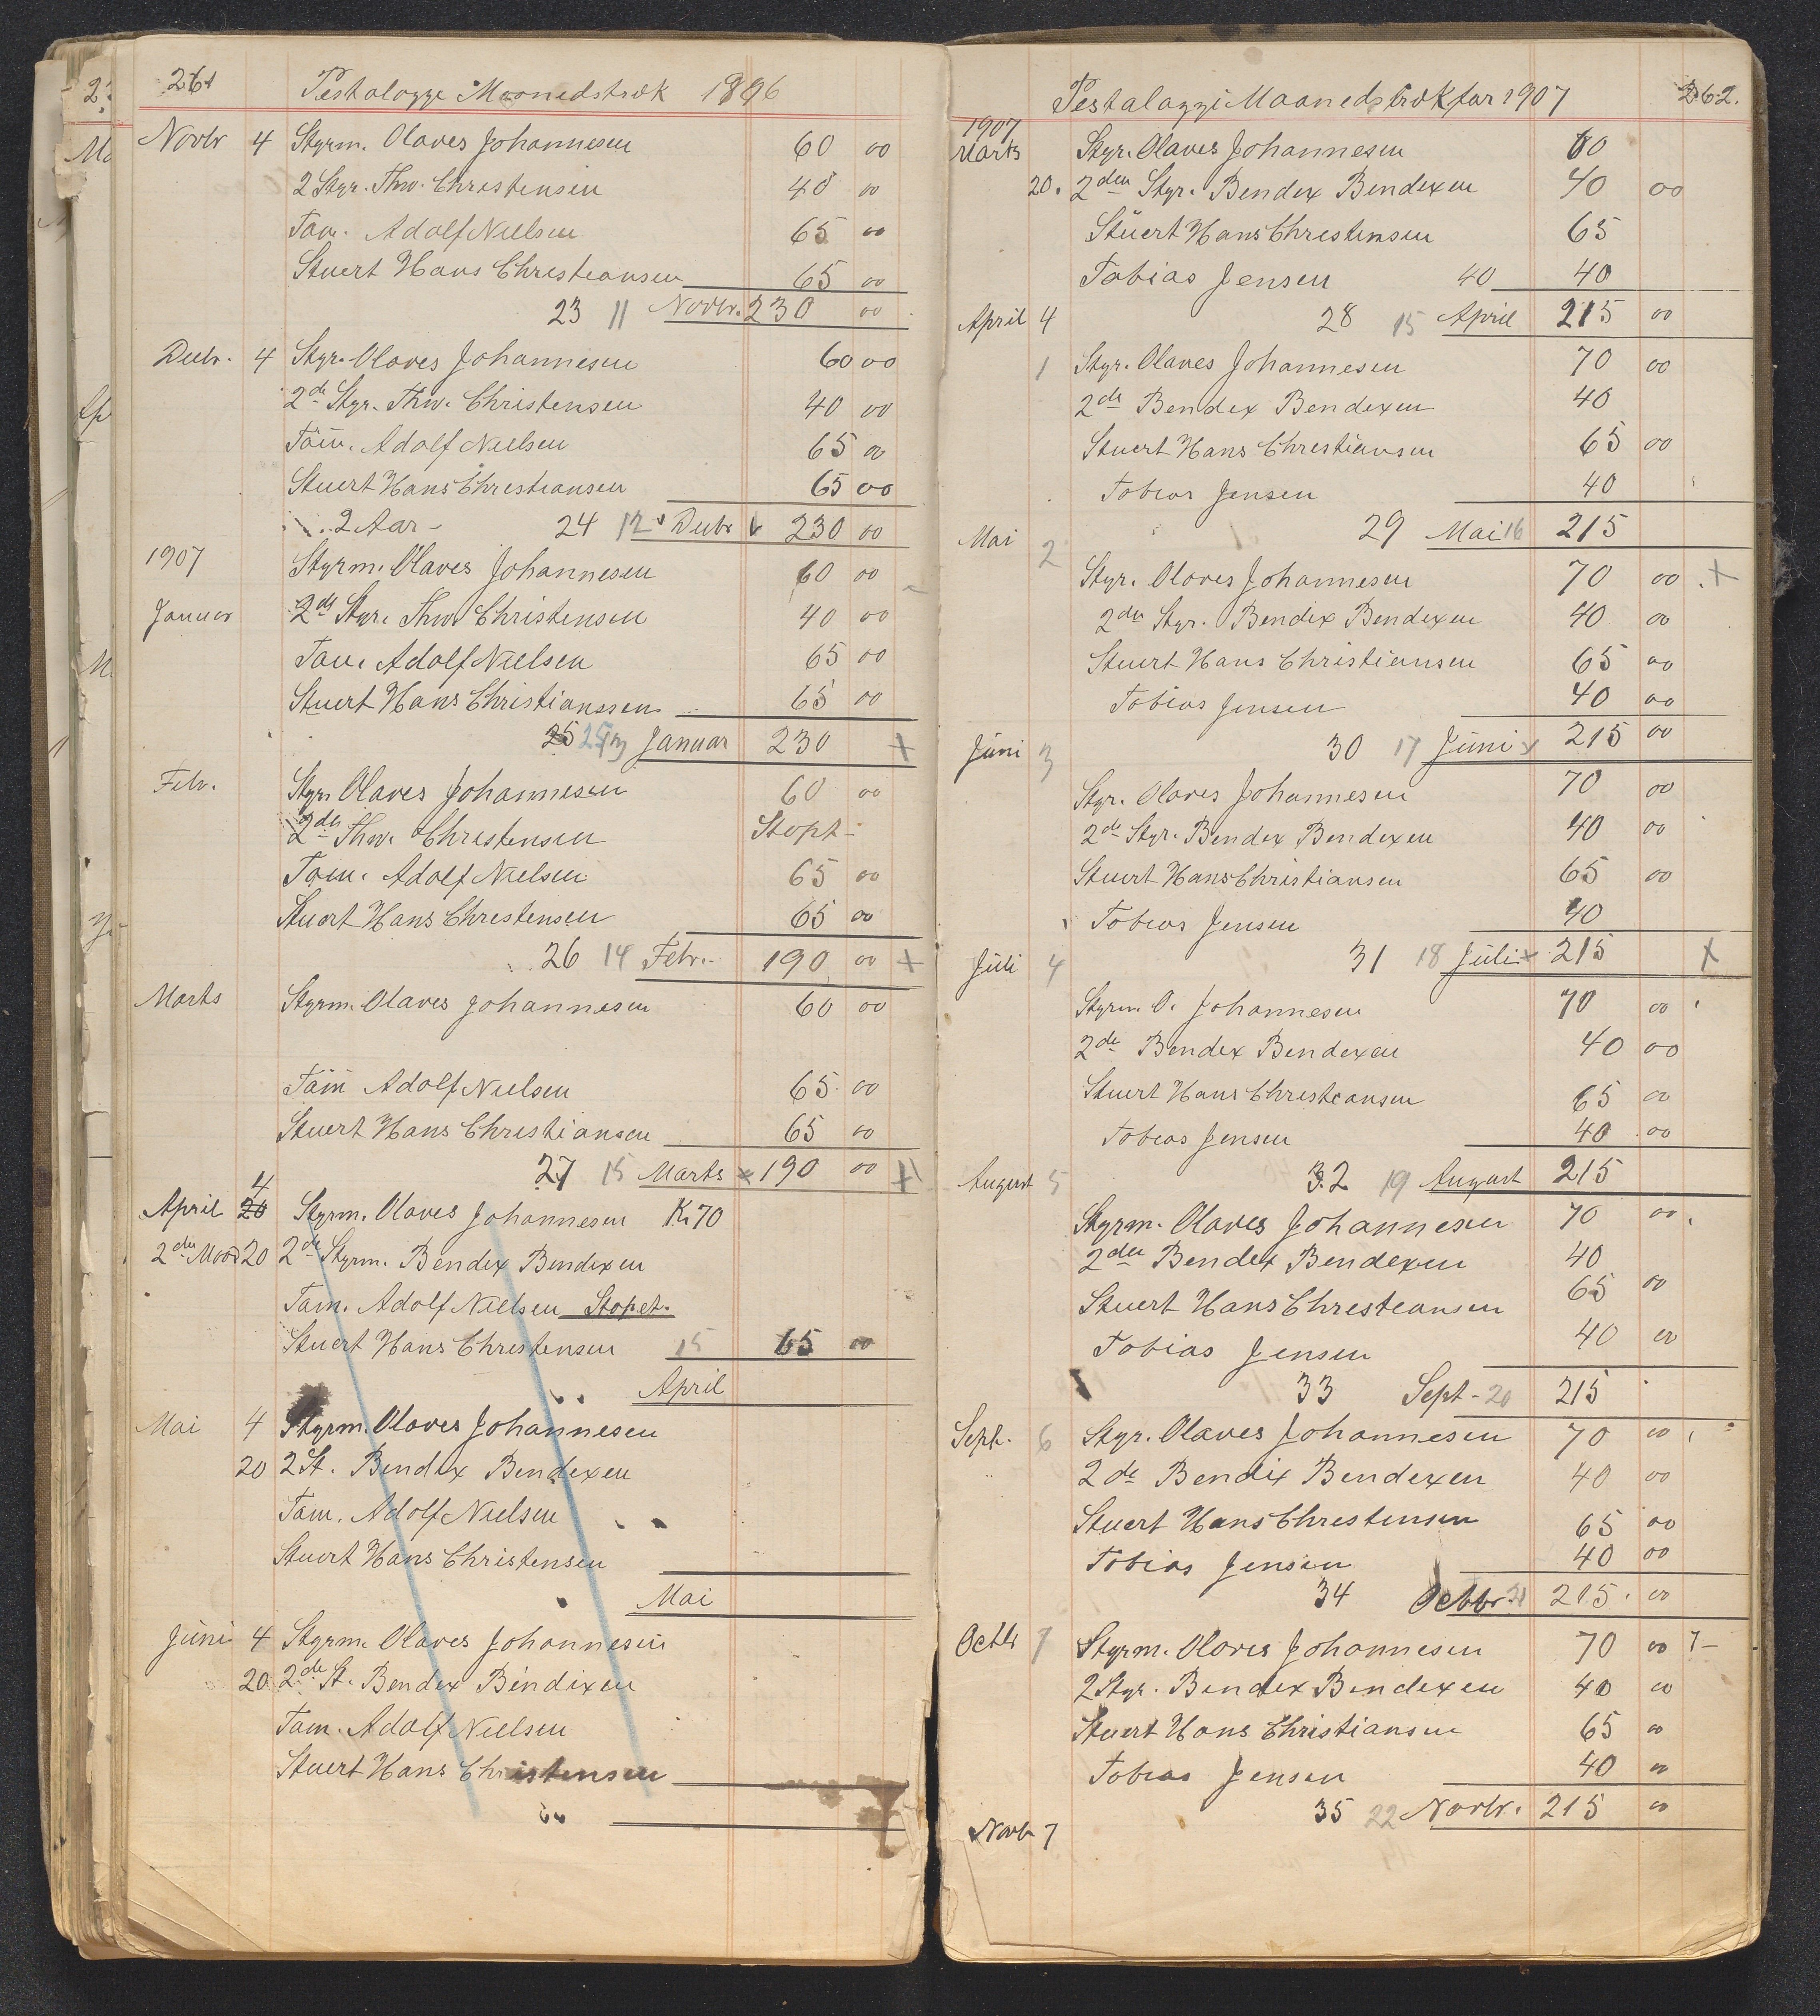 261 Pestalozze Maanedstræk 1896
Novbr 4 Styrm. Olaves Johannesen 60 00
2 Styr. Thw. Christensen 40 00
Tøm. Adolf Nielsen 65 00
Stuert Hans Christiansen 65 00
23 11 Novbr. 230 00
Decbr. 4 Styr. Olaves Johannesen 60 00
2de Styr. Thw. Christensen 40 00
Tøm. Adolf Nielsen 65 00
Stuert Hans Christiansen 65 00
2 Aar - 24 12 Decbr 230 00
1907 Styrm. Olaves Johannesen 60 00
Januar 2de Styr. Thw. Christensen 40 00
Tøm. Adolf Nielsen 65 00
Stuert Hans Christianssen 65 00
25 25 13 Januar 230 +
Febr. Styr. Olaves Johannesen 60 00
2den Thw. Christensen Stopt -
Tøm. Adolf Nielsen 65 00
Stuert Hans Christensen 65 00
26 14 Febr. 190 00 +
Marts Styrm. Olaves Johannesen 60 00
Tøm Adolf Nielsen 65 00
Stuert Hans Christiansen 65 00
27 15 Marts x 190 00 +
4
April 20 Styrm. Olaves Johannesen Kr 70
2den 20 2de Styrm. Bendix Bendixen
Tøm. Adolf Nielsen Stopet.
Stuert Hans Christensen 15 65 00
April
Mai 4 Styrm. Olaves Johannesen
20 2 St. Bendix Bendexen
Tøm. Adolf Nielsen
Stuert Hans Christensen
Mai
Juni 4 Styrm. Olaves Johannesen
20 2de St. Bendex Bendixen
Tøm. Adolf Nielsen
Stuert Hans Christensen
Pestalozzi Maanedstræk for 1907 262.
1907
Marts Styr. Olaves Johannesen 60
20. 2den Styr. Bendex Bendexen 40 00
Stuert Hans Christensen 65
Tobias Jensen 40 40
April 4 28 15 April 215 00
1 Styr. Olaves Johannesen 70 00
2de Bendex Bendexen 40
Stuert Hans Christiansen 65 00
Tobias Jensen 40
Mai 29 Mai 16 215
2 Styr. Olaves Johannesen 70 00 +
2den Styr. Bendix Bendexen 40 00
Stuert Hans Christiansen 65 00
Tobias Jensen 40 00
Juni 3 30 17 Juni x 215 00
Styr. Olaves Johannesen 70 00
2de Styr. Bendex Bendexen 40 00
Stuert Hans Christiansen 65 00
Tobias Jensen 40
Juli 4 31 18 Juli x 215 x
Styrm. O. Johannesen 70 00
2de Bendex Bendexen 40 00
Stuert Hans Christiansen 65 00
Tobias Jensen 40 00
August 5 32 19 August 215
Styrm. Olaves Johannesen 70 00
2den Bendex Bendexen 40
Stuert Hans Christiansen 65 00
Tobias Jensen 40 00
33 Sept - 20 215
Sept. 6 Styr. Olaves Johannesen 70 00
2de Bendix Bendexen 40 00
Stuert Hans Christensen 65 00
Tobias Jensen 40 00
34 Octbr 21 215. 00
Octbr 7 Styrm. Olaves Johannesen 70 00 7-
2 Styr. Bendex Bendexen 40 00
Stuert Hans Christiansen 65 00
Tobias Jensen 40 00
35 22 Novbr. 215 00
Novbr 7